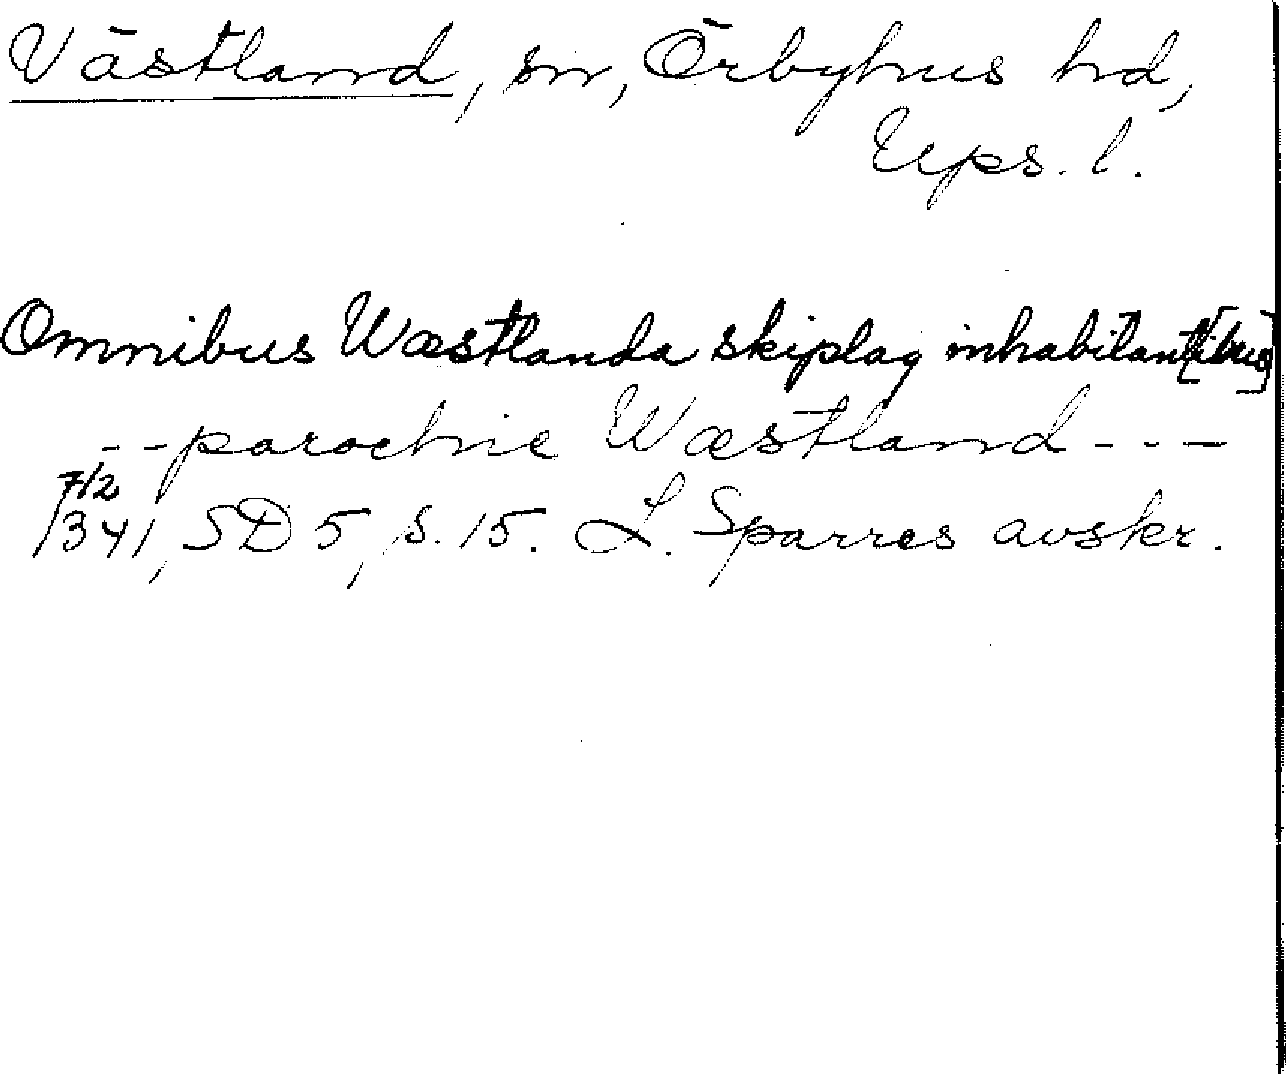 Västland, sn, Örbyhus hd,
Ups. l.
Omnibus Wæstlanda skiplag inhabitant[ibus]
--parochie Wæstland---
7/2
1341, SD 5, s. 15. L. Sparres avskr.